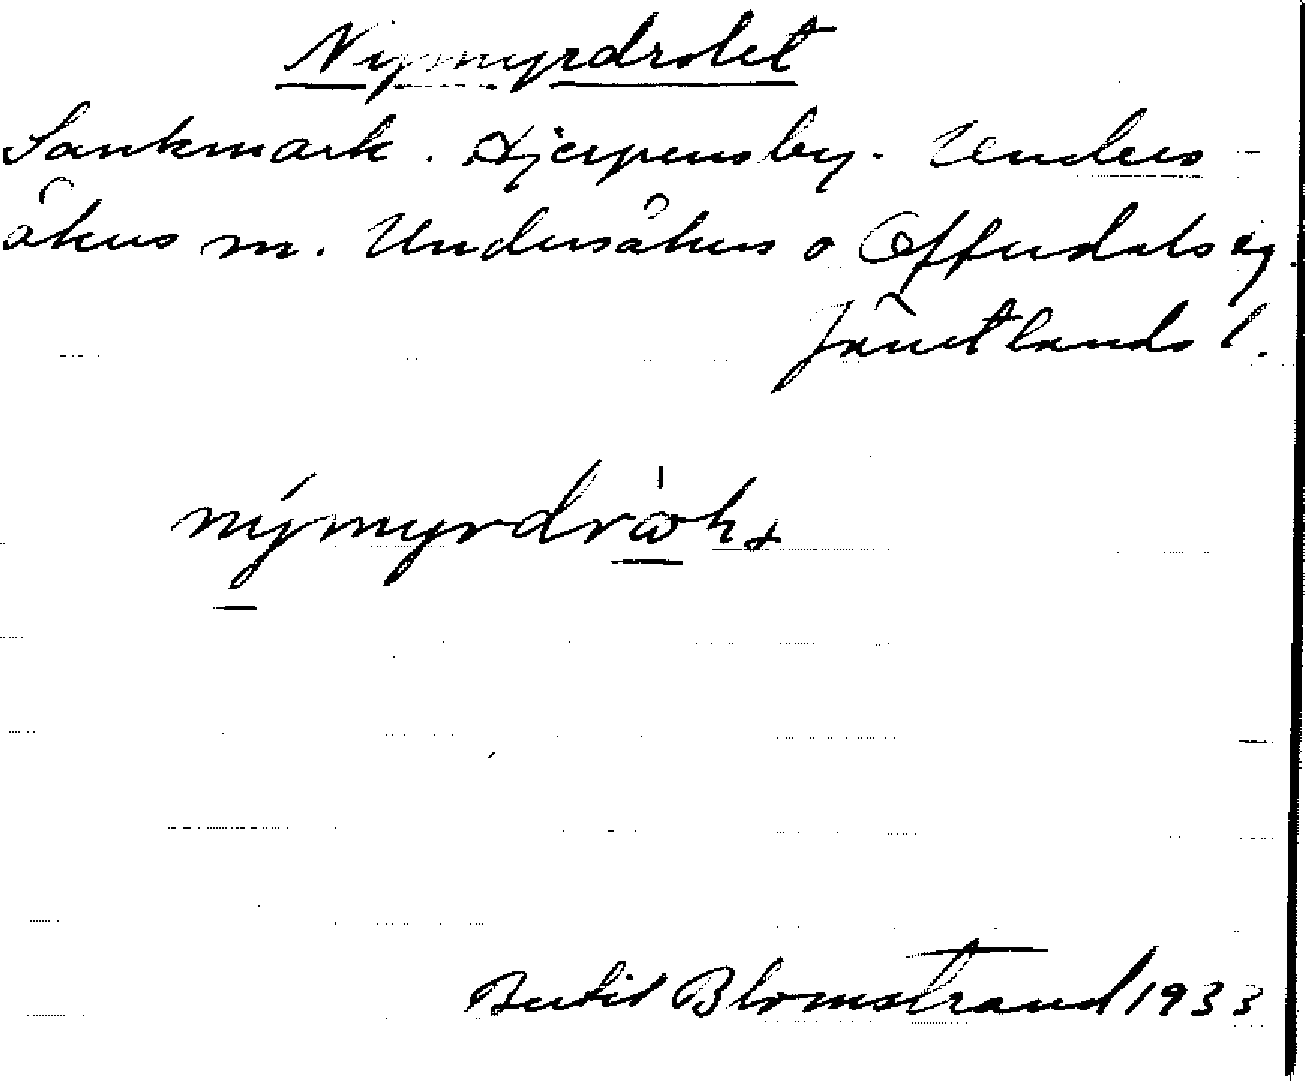 Nymyrdrolet
Sankmark. Hjerpensby. Unders-
åkers sn. Undersåkers o Offerdals tg.
Jämtlands l.
Bertil Blomstrand 1933